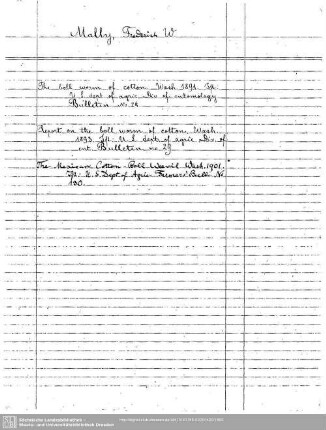 Mally, Frederick W
The boll worm of cotton. Wash. 1891. In:
U S dept of agric. Div. of entomology
Bulletin No 24
Report on the boll worm of cotton. Wash.
1893. In: U S dept of agric. Div. of
ent. Bulletin no. 29
The Mexican Cotton-Boll Weevil. Wash. 1901.
In: U. S. Dept of Agric. Farmers' Bull. No
130.
Sächsische Landesbibliothek -
Staats- und Universitätsbibliothek Dresden